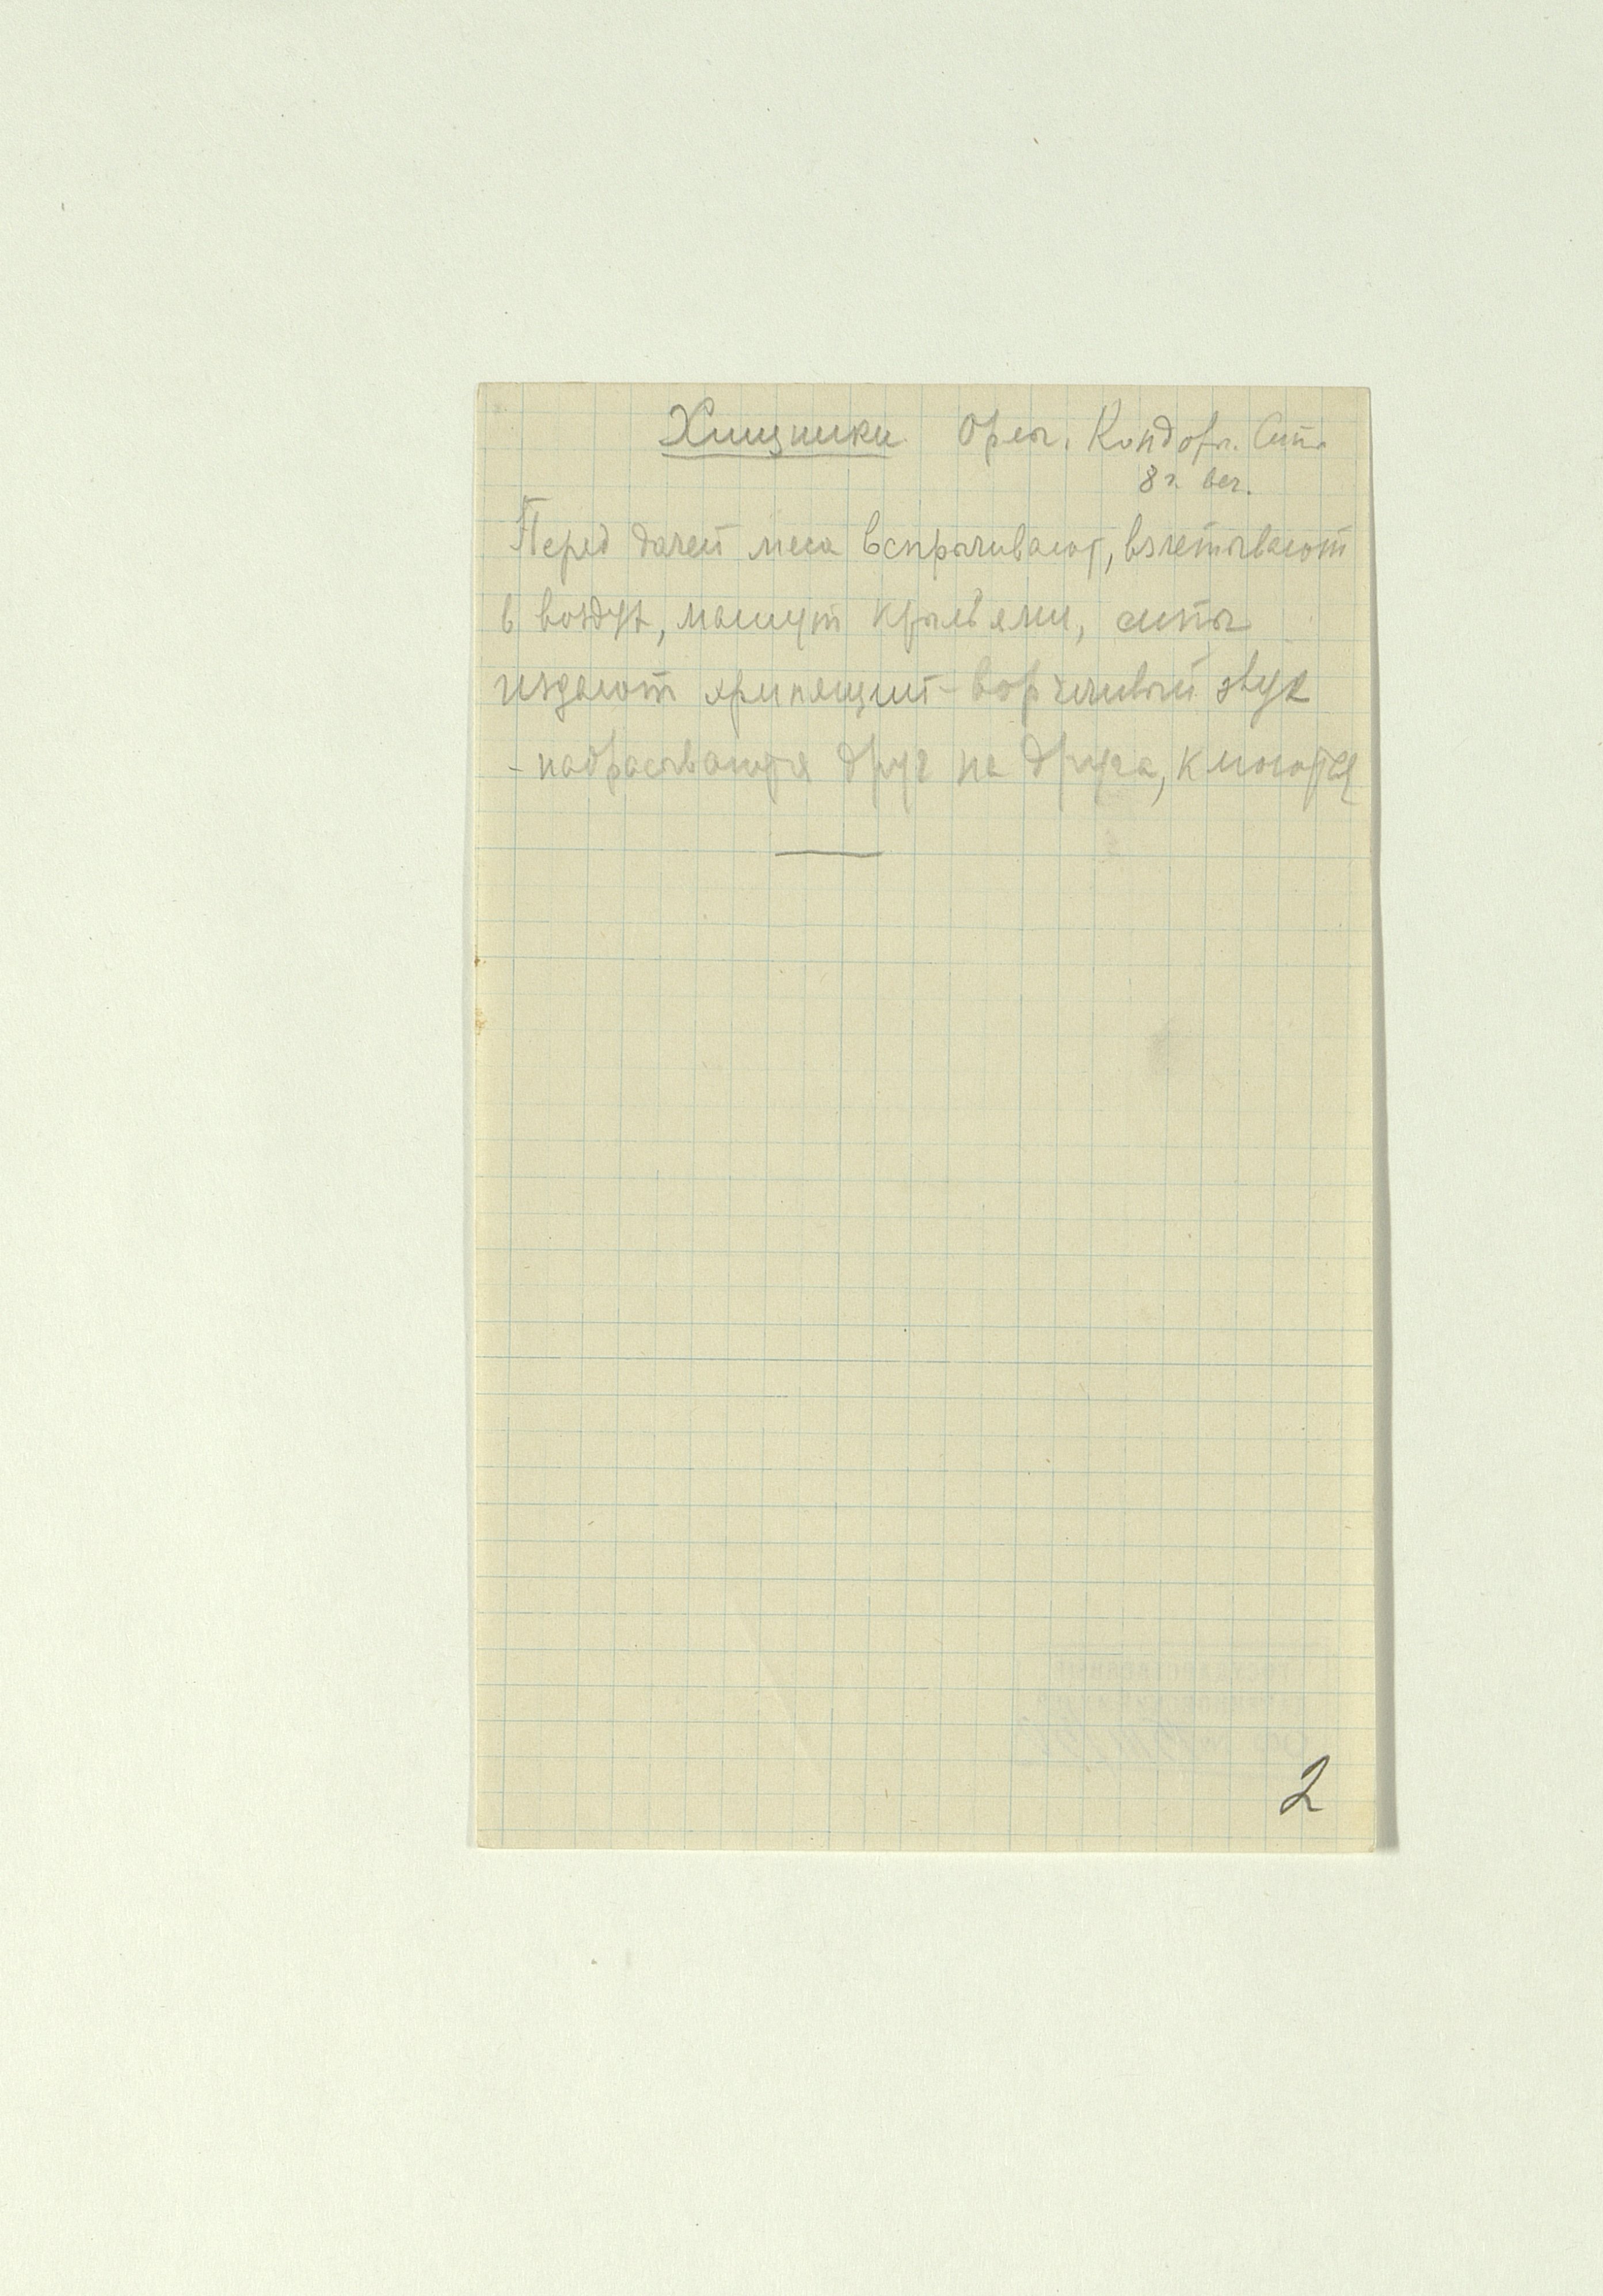 Хищники Орлы. Кондоры. Сипы
8 ч. веч.
Перед дачей мяса вспрыгивают, взлетывают
в воздух, машут крыльями, сипы
издают хрипящий-ворчливый звук
- набрасываются друг на друга, клюются
2